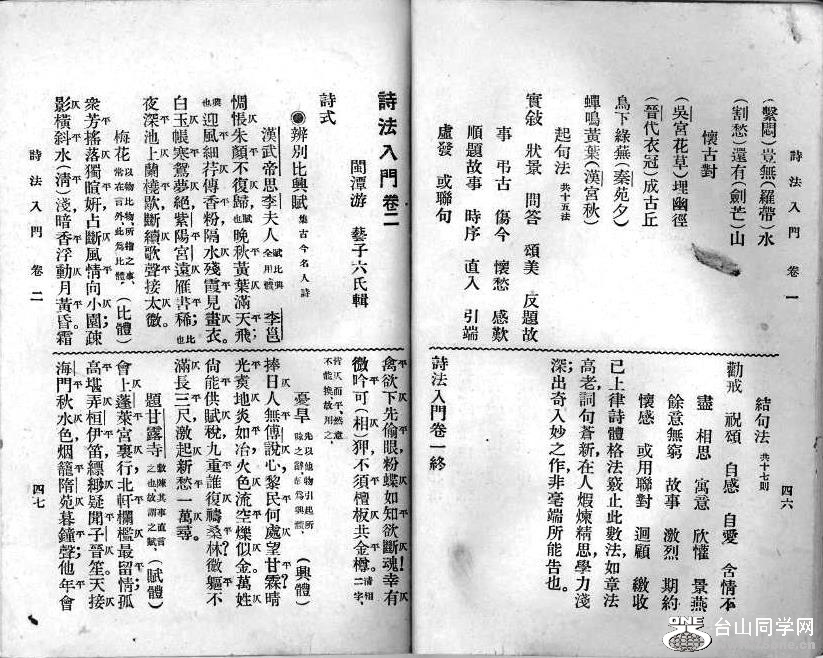 詩法入門 卷一
四六
(繫悶)豈無(羅帶)水
(割愁)還有(劍芒)山
懷古對
(吳宮花草)埋幽徑
(晉代衣冠)成古丘
鳥下綠蕪(秦苑夕)
蟬鳴黃葉(漢宮秋)
起句法 共十五法
實敍 狀景 問答 頌美 反題故
事 弔古 傷今 懷愁 感歎
順題故事 時序 直入 引端
虛發 或聯句
結句法 共十七則
勸戒 祝頌 自感 自愛 含情不
盡 相思 寓意 欣懽 景燕
餘意無窮 故事 激烈 期約
懷感 或用聯對 迴顧 繳收
已上律詩體格法竅止此數法如章法
高老詞句蒼新在人煆煉精思學力淺
深出奇入妙之作非毫端所能告也。
詩法入門卷一終
詩法入門卷二
閩潭游 藝子六氏輯
詩式
辨別比興賦 集古今名人詩
漢武帝思李夫人 賦比興全用體 李邕
惆悵朱顏不復歸。賦也晚秋黃葉滿天飛;
興也迎風細荇傳香粉隔水殘霞見畫衣。
白玉帳寒鴛夢絕紫陽宮遠雁書稀;比也
夜深池上蘭橈歇斷續歌聲接太微。
梅花 以物比物、所繪之事、常在言外此爲比體、(比體)
衆芳搖落獨暄姸占斷風情向小園疎
影橫斜水(清)淺暗香浮動月黃昏霜
禽欲下先偷眼粉蝶如知欲斷魂!幸有
微吟可(相)狎不須檀板共金樽。清相二字、
皆仄而平、然意不能換故用之、
憂旱 先以他物引起所 爲興體、(興體)
捧日人無傅說心黎民何處望甘霖?晴
光爇地炎如冶火色流空爍似金萬姓
尙能供賦稅九重誰復禱桑林?微軀不
滿長三尺激起新愁一萬尋。
題甘露寺 敷陳其事直言之也故謂之賦、(賦體)
會上蓬萊宮裏行北軒欄檻最留情孤
高堪弄桓伊笛縹緲疑聞子晉笙。天接
海門秋水色烟籠隋苑暮鐘聲;他年會
詩法入門 卷二
四七
ONE
台山同学网